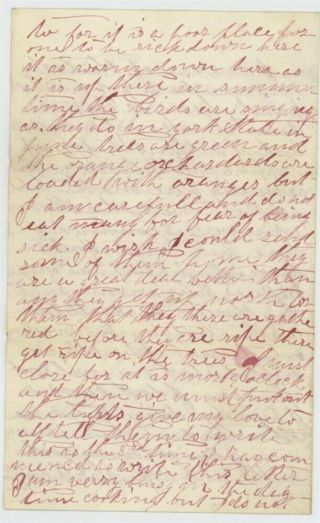 to for it is a poor place for
one to be sick down here
it is warm down here as
it is up there in summer
time the birds are singing
as they do in york State in
June trees are green and
the orange orchardards are
loaded with oranges but
I am carefull and do not
eat many for fear of being
sick I wish I could send
some of them home they
are a great deal better than
any they get up north for
them that they there are gathe
red before they are ripe these
get ripe on the trees I must
close for it is most oclock
and then we must put out
the lights give my love to
all tell them to write
this is the time I have com
menced to write this letter
I am very busy in the day
time cooking but I do not